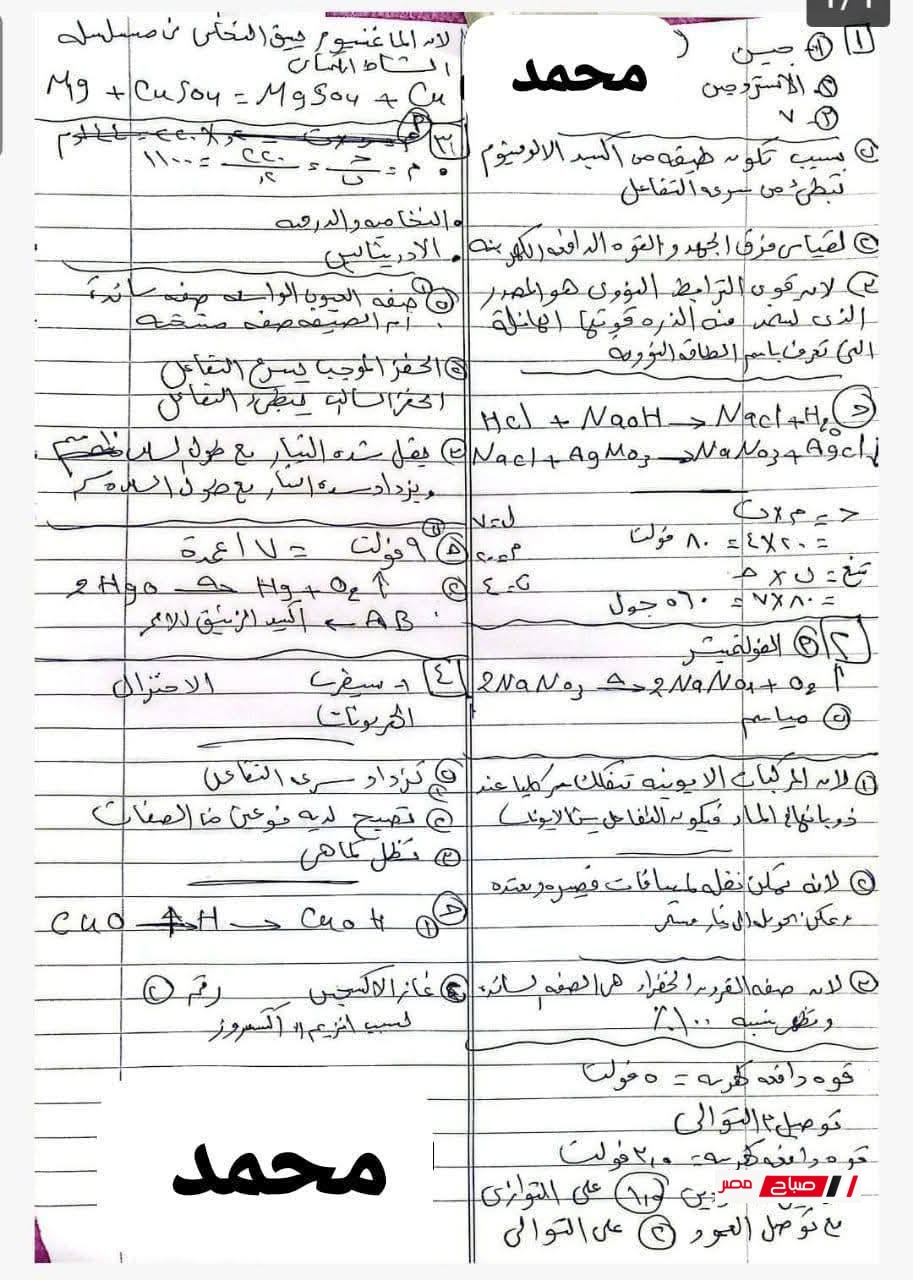 ١/١
محمد
١ ١- جين
٢- الاستروجين
٣- ٧
١ بسبب تكون طبقه من اكسيد الالومنيوم
تبطئ من سرعه التفاعل
٢ لقياس فرق الجهد و القوه الدافعه الكهربيه
٣ لانه قوى الترابط النووى هو المصدر
الذى تستمد منه الذره قوتها الهائلة
التى تعرف باسم الطاقه النوويه
Hcl + NaoH → Nacl + H₂o
Nacl + AgMo₃ → NaNo₃ + Agcl↓
ج = م × ت
= ٢٠ × ٤ = ٨٠ فولت
= ٧ × ٨٠ = ٥٦٠ جول
ل = ٧
م = ٢٠
ت = ٤
٢ الفولتميتر
2NaNo₃ → 2NaNo₂ + O₂ ↑
مياسم
١ لانه المركبات الايونيه تتفكك كليا عند
ذوبانها فى الماء فيكون التفاعل بين الايونات
٢ لانه يمكن نقله لمسافات قصيره وبعيده
ويمكن تحويله الى تيار مستمر
٣ لانه صفه القرون الخضراء هى الصفه السائده
وتظهر بنسبه ١٠٠٪
قوه دافعه كهربيه = ٥ فولت
توصيل ٣ التوالى
قوه دافعه كهربيه = ٢,٥ فولت
على التوازى
مع توصل العمود ٣ على التوالى
صباح مصر
لانه الماغنسيوم يسبق النحاس فى متسلسله
النشاط الكيميائى
Mg + CuSo₄ = MgSo₄ + Cu
٣
م = ج / ت = ٢٢٠ / ٠,٢ = ١١٠٠
النخاميه والدرقيه
الادرينالين
صفه العيون الواسعه صفه سائدة
ام الضيقه صفه متنحيه
٢ الحفز الموجب يسرع التفاعل
الحفز السالب يبطئ التفاعل
٣ يقل شده التيار مع طول السلك
ويزداد شده التيار مع طول السلك
٩ فولت = ٧ اعمدة
2Hgo → Hg + O₂ ↑
AB ← اكسيد الزئبق الاحمر
٤ ١- سيفرت الاختزال
الكربونات
تزداد سرعه التفاعل
٢ تصبح لديه نوعين من الصفات
٣ تظل كما هى
CuO + H → Cuo H
غاز الاكسجين رقم ٢
لسبب انزيم الاكسيديز
محمد